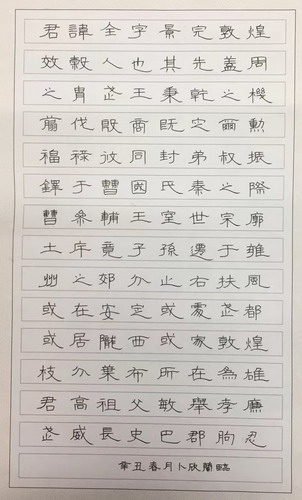 君諱全字景完敦煌
效穀人也其先蓋周
之胄武王秉乾之機
翦伐殷商既定爾勳
福祿攸同封弟叔振
鐸于曹國氏秦之際
曹參輔王室世宗廓
土斥竟子孫遷于雍
州之郊分止右扶風
或在安定或處武都
或居隴西或家敦煌
枝分葉布所在為雄
君高祖父敏舉孝廉
武威長史巴郡朐忍
辛丑春月卜欣簡臨